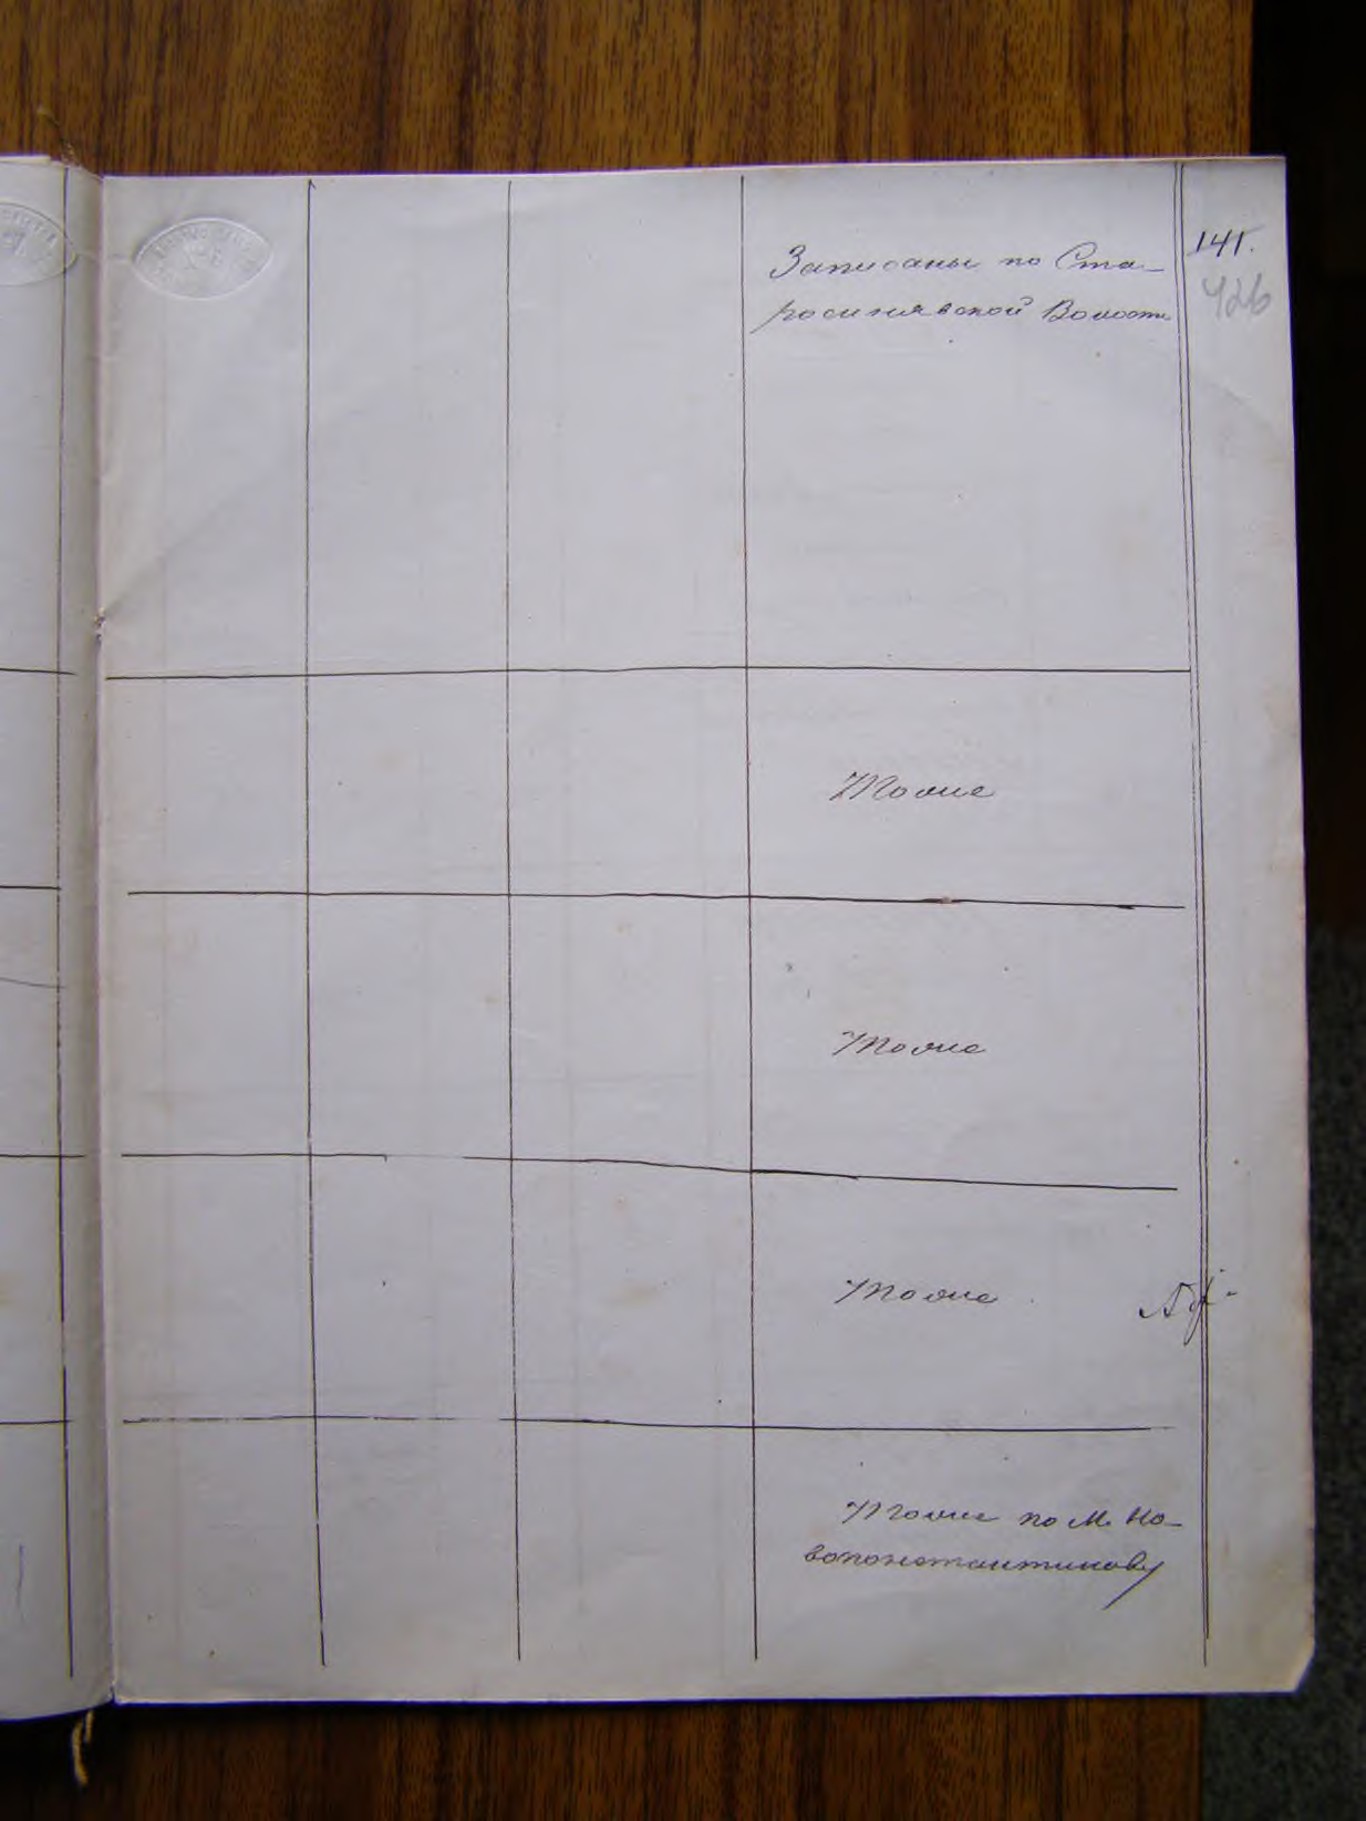 Записаны по Ста-
росинявской Волости
141.
426
Тоже
Тоже
Тоже
Тоже по М. Но-
воконстантинову